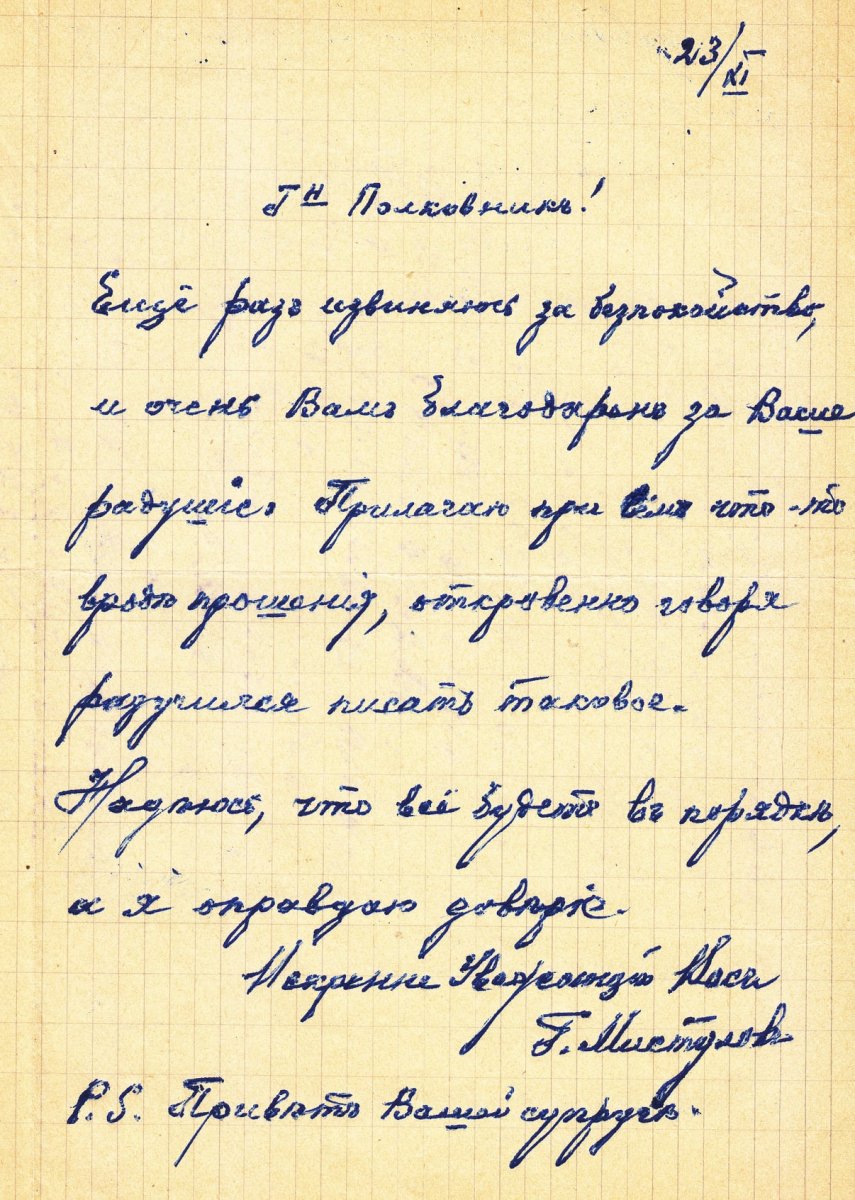 23/XI
Гн Полковникъ!
Ещё разъ извиняюсь за безпокойство,
и очень Вамъ благодаренъ за Ваше
радушіе. Прилагаю при сёмъ что-то
вродѣ прошенія, откровенно говоря
разучился писать таковое.
Надѣюсь, что всё будетъ въ порядкѣ,
а я оправдаю довѣріе.
Искренне Уважающій Васъ
Г. Мистуловъ
P.S. Привѣтъ Вашей супругѣ.